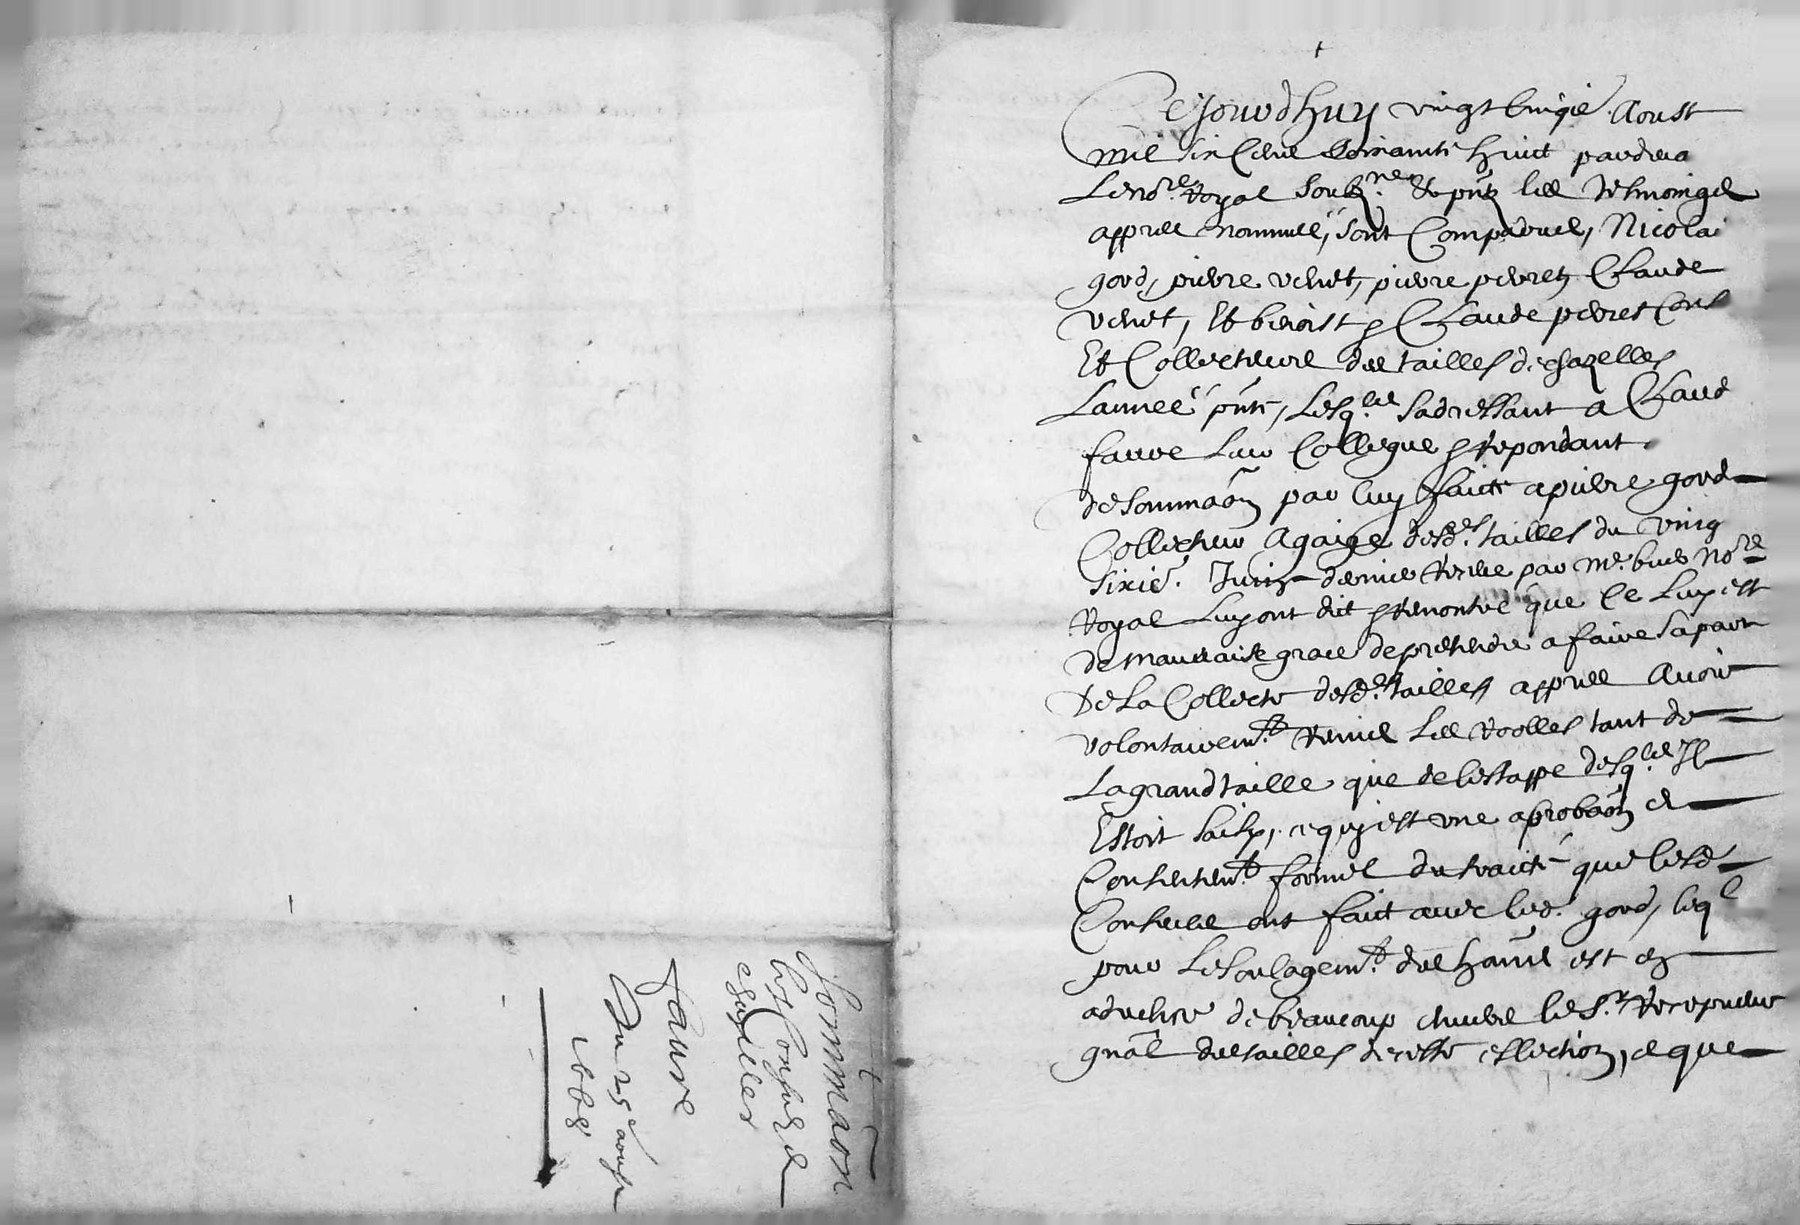 +
Cejourdhuy vingt cinqie. Aoust
mil six Cens soixante huict pardeva
Le no.re Royal soubz.ne & pñs les tesmoingts
appres nommes, sont Comparues, Nicolas
gord, pierre venet, pierre peyret, Claude
venet, Et benoist & Claude peyret Cons
Et Collecteurs des tailles de chazelles
Lannee pñte, Lesq.els sadressant a Claud
faure Leur Collegue & repondant
de sommaõn par luy faicte a pierre gord
Collecteur Agaige desd.es tailles du ving
sixie. Juing dernier receue par Me. no.re
Royal Luy ont dit & remontré que Ce Luy est
de mauvaise grace de pretendre a faire sa part
De La Collecte desd.es tailles appres Avoir
volontairem.t Remis Les Roolles tant de
La grand taille que de lestappe desq.els Il
Estoit saisy, ce quy est une aprobaõn et
Consentem.t formel du traicté que lesd.
Consulz ont faict avec led. gord, leq.l
pour Le soulagem.t des hãns est en
advence de beaucoup envers le S.r Recepveur
gnãl des tailles de cette eslection, ce que
Sommaõn
les Consulz de
chazelles
faure
Du 25e aoust
1668